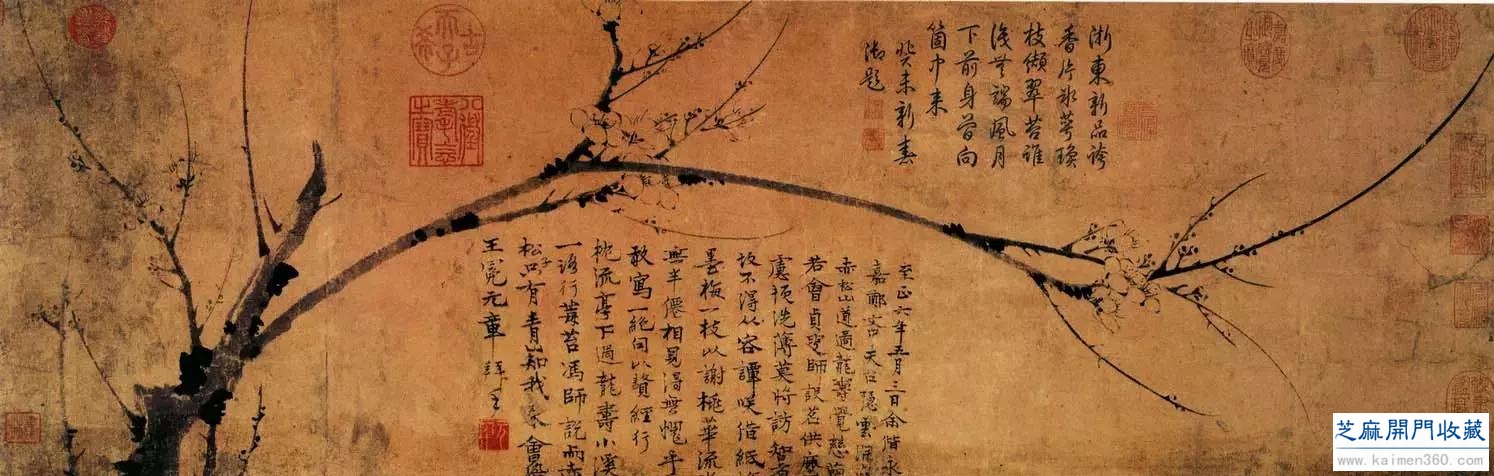 浙東新品誇
香片冰萼瓊
枝傾翠苔誰
無端風月
下前身曾向
箇中來
癸未新春
御題
古希天子
八徵耄念之寶
至正六年五月三日余偕永
嘉鄺客天台隱雲深
赤松山道過龍壽覺慈
若會貞叟師設茗供
洗薄莫將訪
故不得從容譚咲借紙
墨梅一枝以謝桃華流
無半僊相見得無愧乎
敢寫一絕句以贊經行
枕流亭下過龍壽小溪
一路行黃苔馮師說而赤
松子只有青山知我來會
王冕元章拜手
芝麻開門收藏
www.kaimen360.com